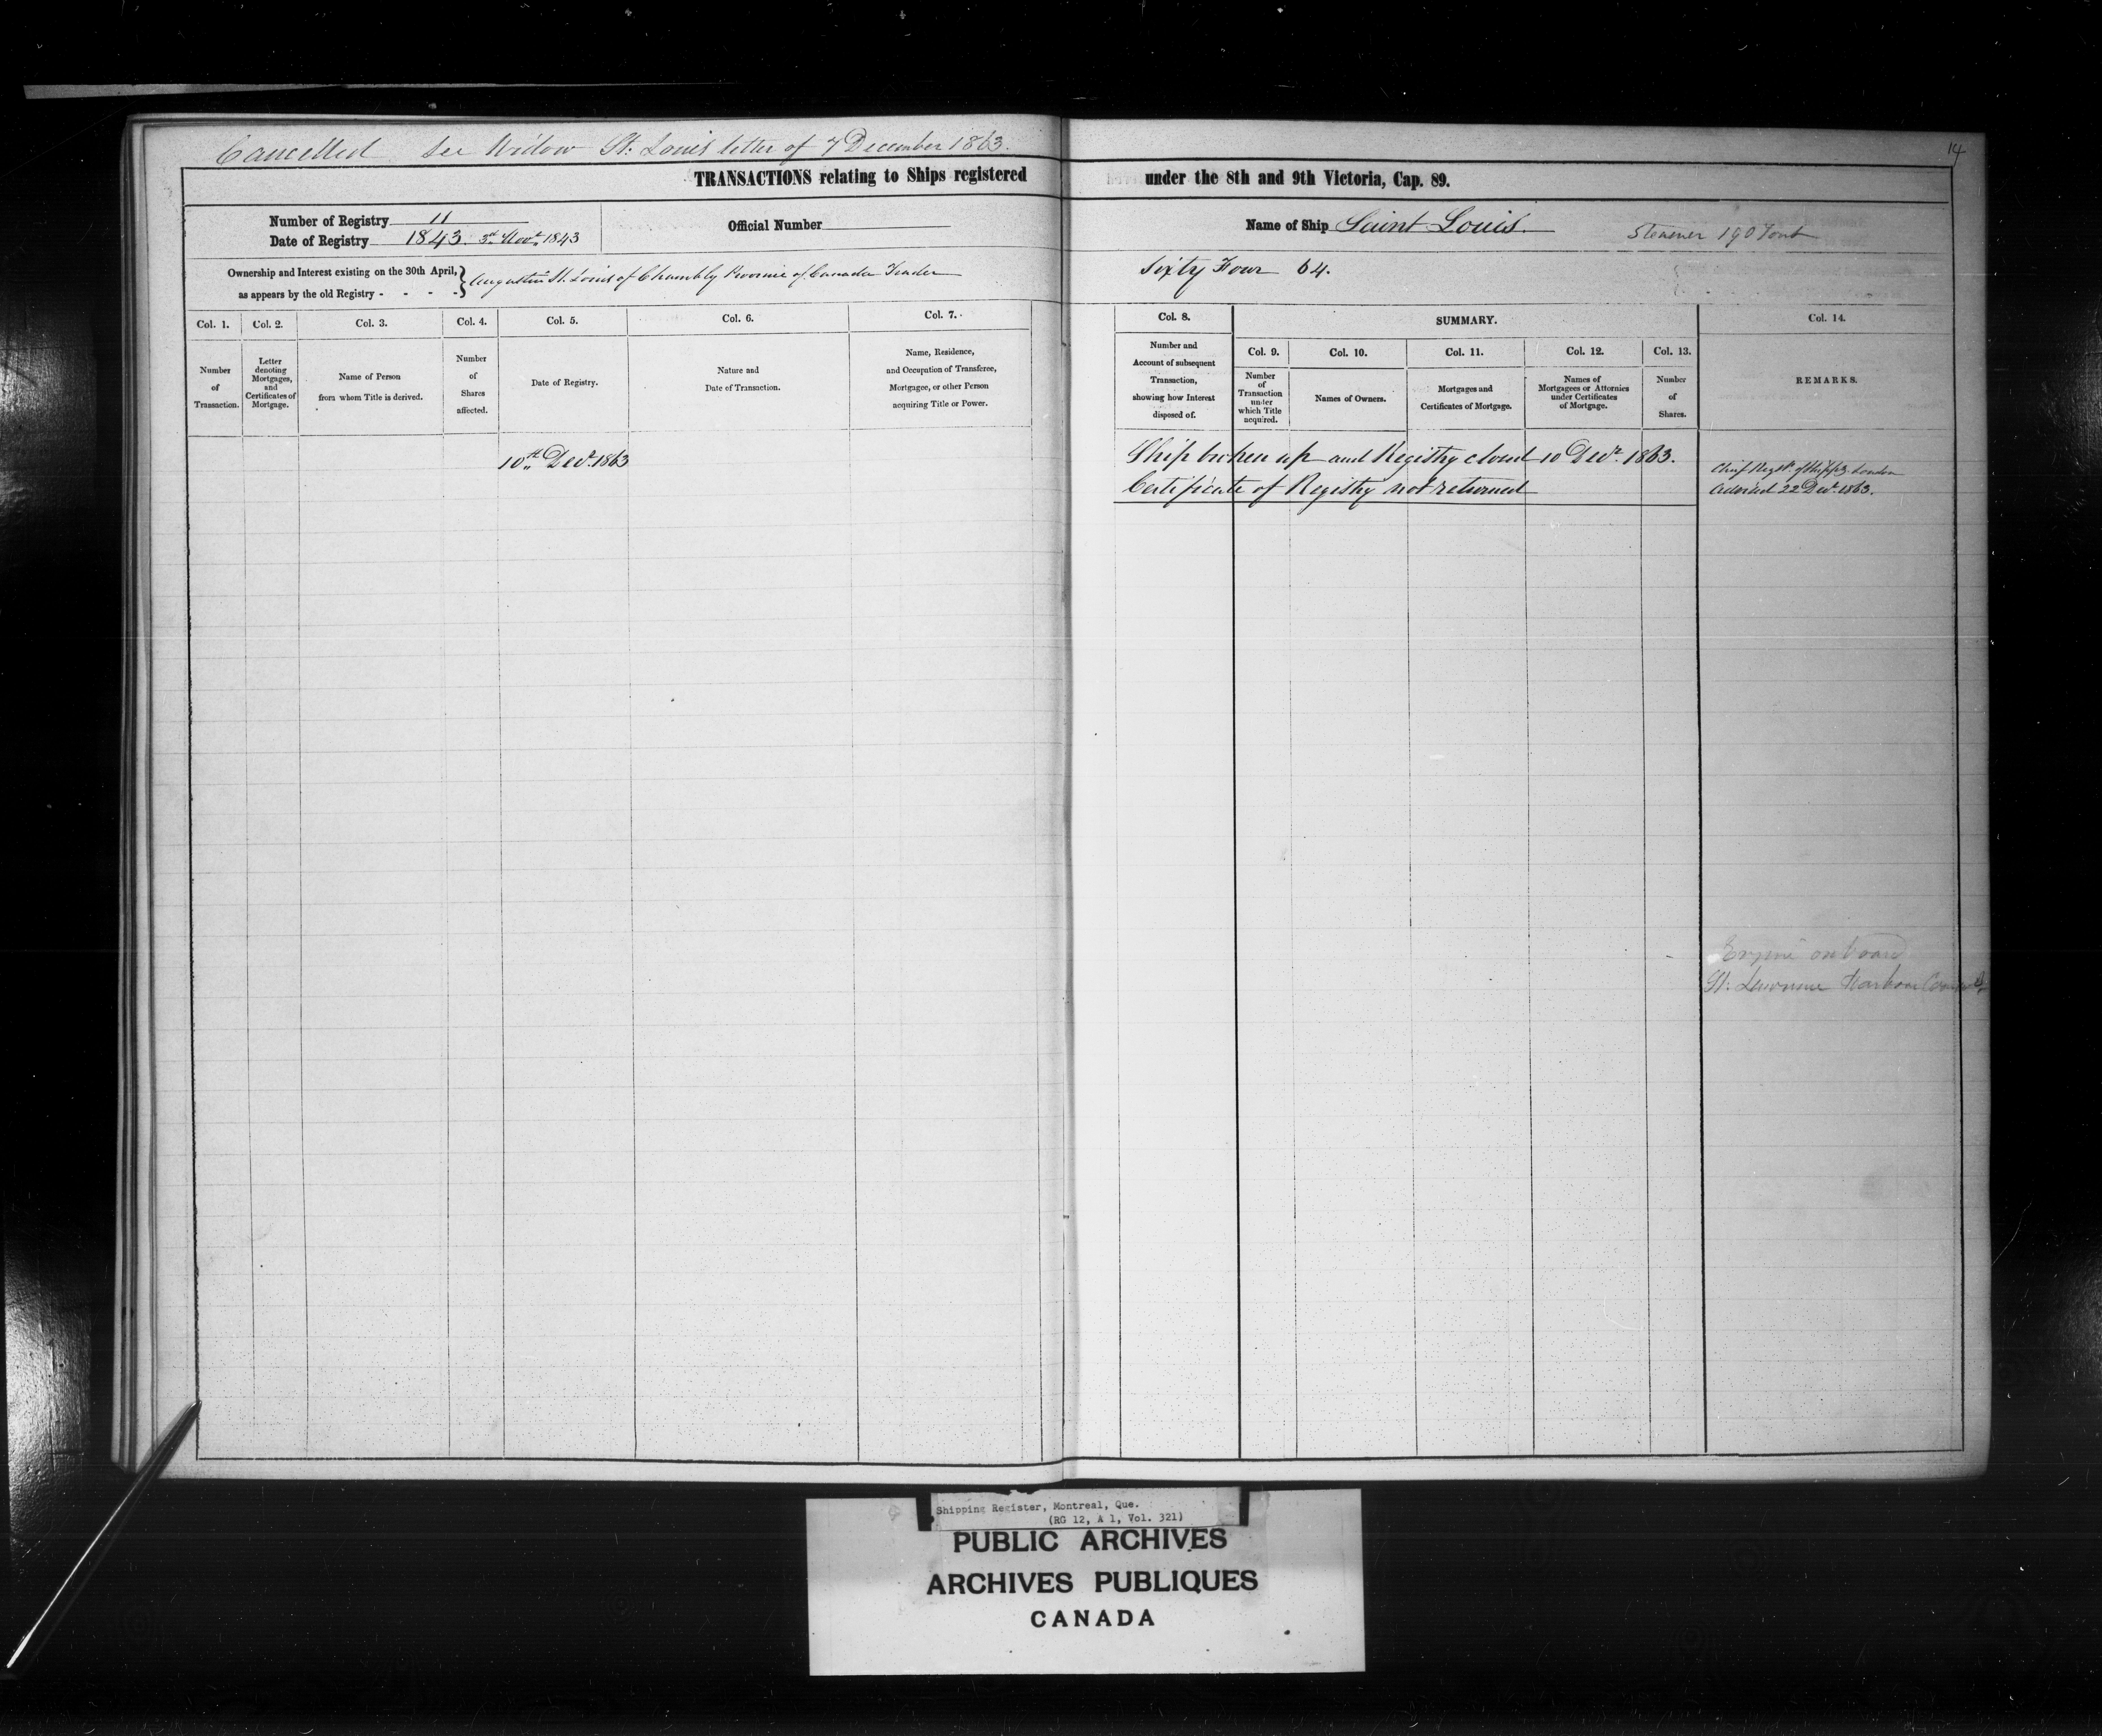 Cancelled See Widow St. Louis letter of 7 December 1863.
14
TRANSACTIONS relating to Ships registered under the 8th and 9th Victoria, Cap. 89.
Number of Registry 11
Date of Registry 1843. 3rd Novr. 1843
Official Number
Name of Ship Saint Louis.
Steamer 190 Tons
Ownership and Interest existing on the 30th April,
as appears by the old Registry - - - -
Augustin St. Louis of Chambly Province of Canada Trader
Sixty Four 64.
Col. 1.
Number
of
Transaction.
Col. 2.
Letter
denoting
Mortgages,
and
Certificates of
Mortgage.
Col. 3.
Name of Person
from whom Title is derived.
Col. 4.
Number
of
Shares
affected.
Col. 5.
Date of Registry.
Col. 6.
Nature and
Date of Transaction.
Col. 7.
Name, Residence,
and Occupation of Transferee,
Mortgagee, or other Person
acquiring Title or Power.
Col. 8.
Number and
Account of subsequent
Transaction,
showing how Interest
disposed of.
SUMMARY.
Col. 9.
Number
of
Transaction
under
which Title
acquired.
Col. 10.
Names of Owners.
Col. 11.
Mortgages and
Certificates of Mortgage.
Col. 12.
Names of
Mortgagees or Attornies
under Certificates
of Mortgage.
Col. 13.
Number
of
Shares.
Col. 14.
REMARKS.
10th Decr. 1863
Ship broken up and Registry closed 10 Decr. 1863.
Certificate of Registry not returned
Chief Regstr. of Shippg. London
Advised 22 Decr. 1863.
Engine on board
St. Lawrence Harbour
Shipping Register, Montreal, Que.
(RG 12, A 1, Vol. 321)
PUBLIC ARCHIVES
ARCHIVES PUBLIQUES
CANADA